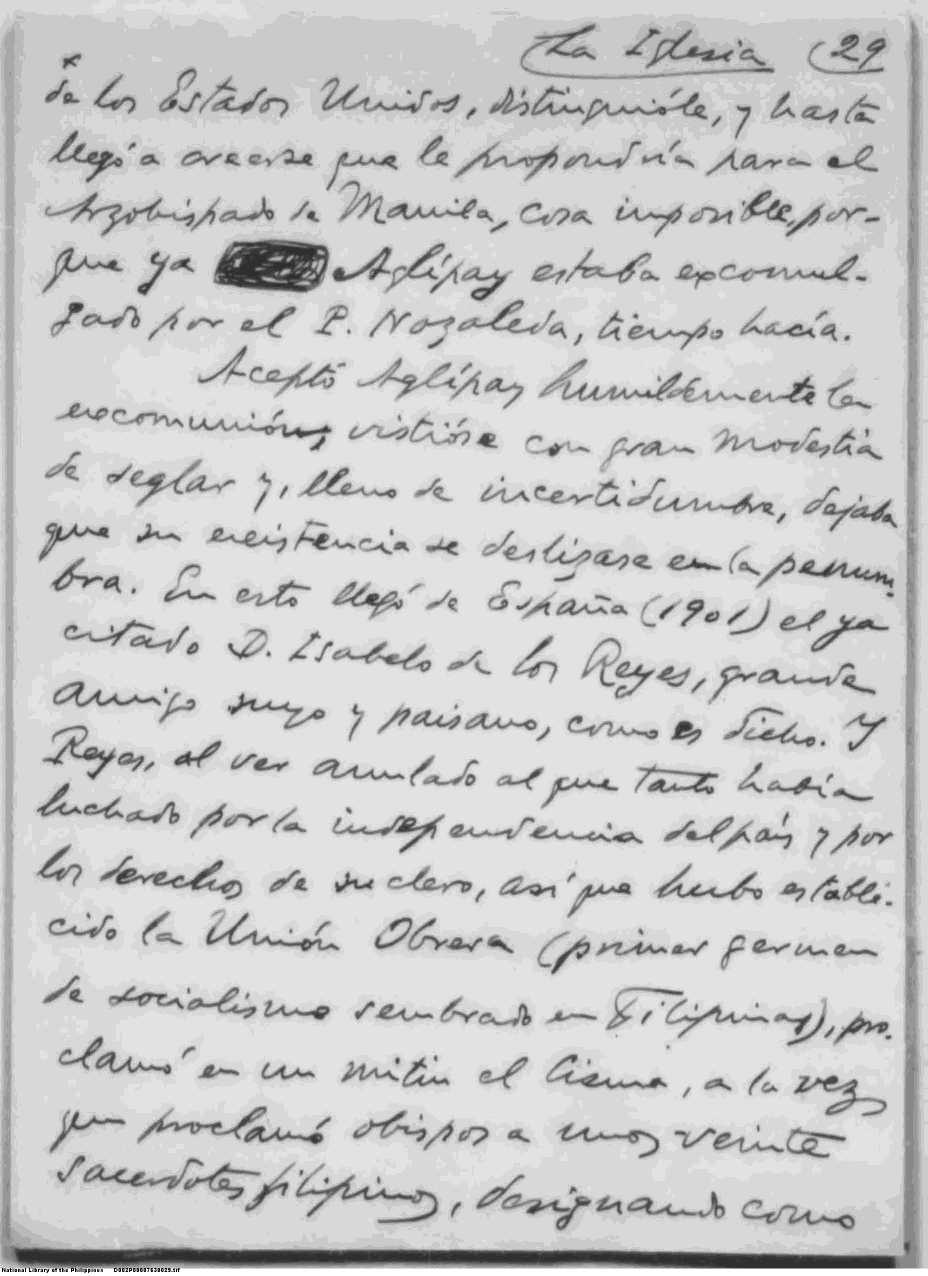 La Iglesia (29
de los Estados Unidos, distinguióle, y hasta
llegó a creerse que le propondría para el
Arzobispado de Manila, cosa imposible, por-
que ya Aglípay estaba excomul-
gado por el P. Nozaleda, tiempo hacía.
Aceptó Aglípay humildemente la
excomunión, vistióse con gran modestia
de seglar y, lleno de incertidumbre, dejaba
que su existencia se deslizase en la penum-
bra. En esto llegó de España (1901) el ya
citado D. Isabelo de los Reyes, grande
amigo suyo y paisano, como es dicho. Y
Reyes, al ver anulado al que tanto había
luchado por la independencia del país y por
los derechos de su clero, así que hubo estable-
cido la Unión Obrera (primer germen
de socialismo sembrado en Filipinas), pro-
clamó en un mitin el Cisma, a la vez
que proclamó obispos a unos veinte
sacerdotes filipinos, designando como
National Library of the Philippines D002P00007630029.tif